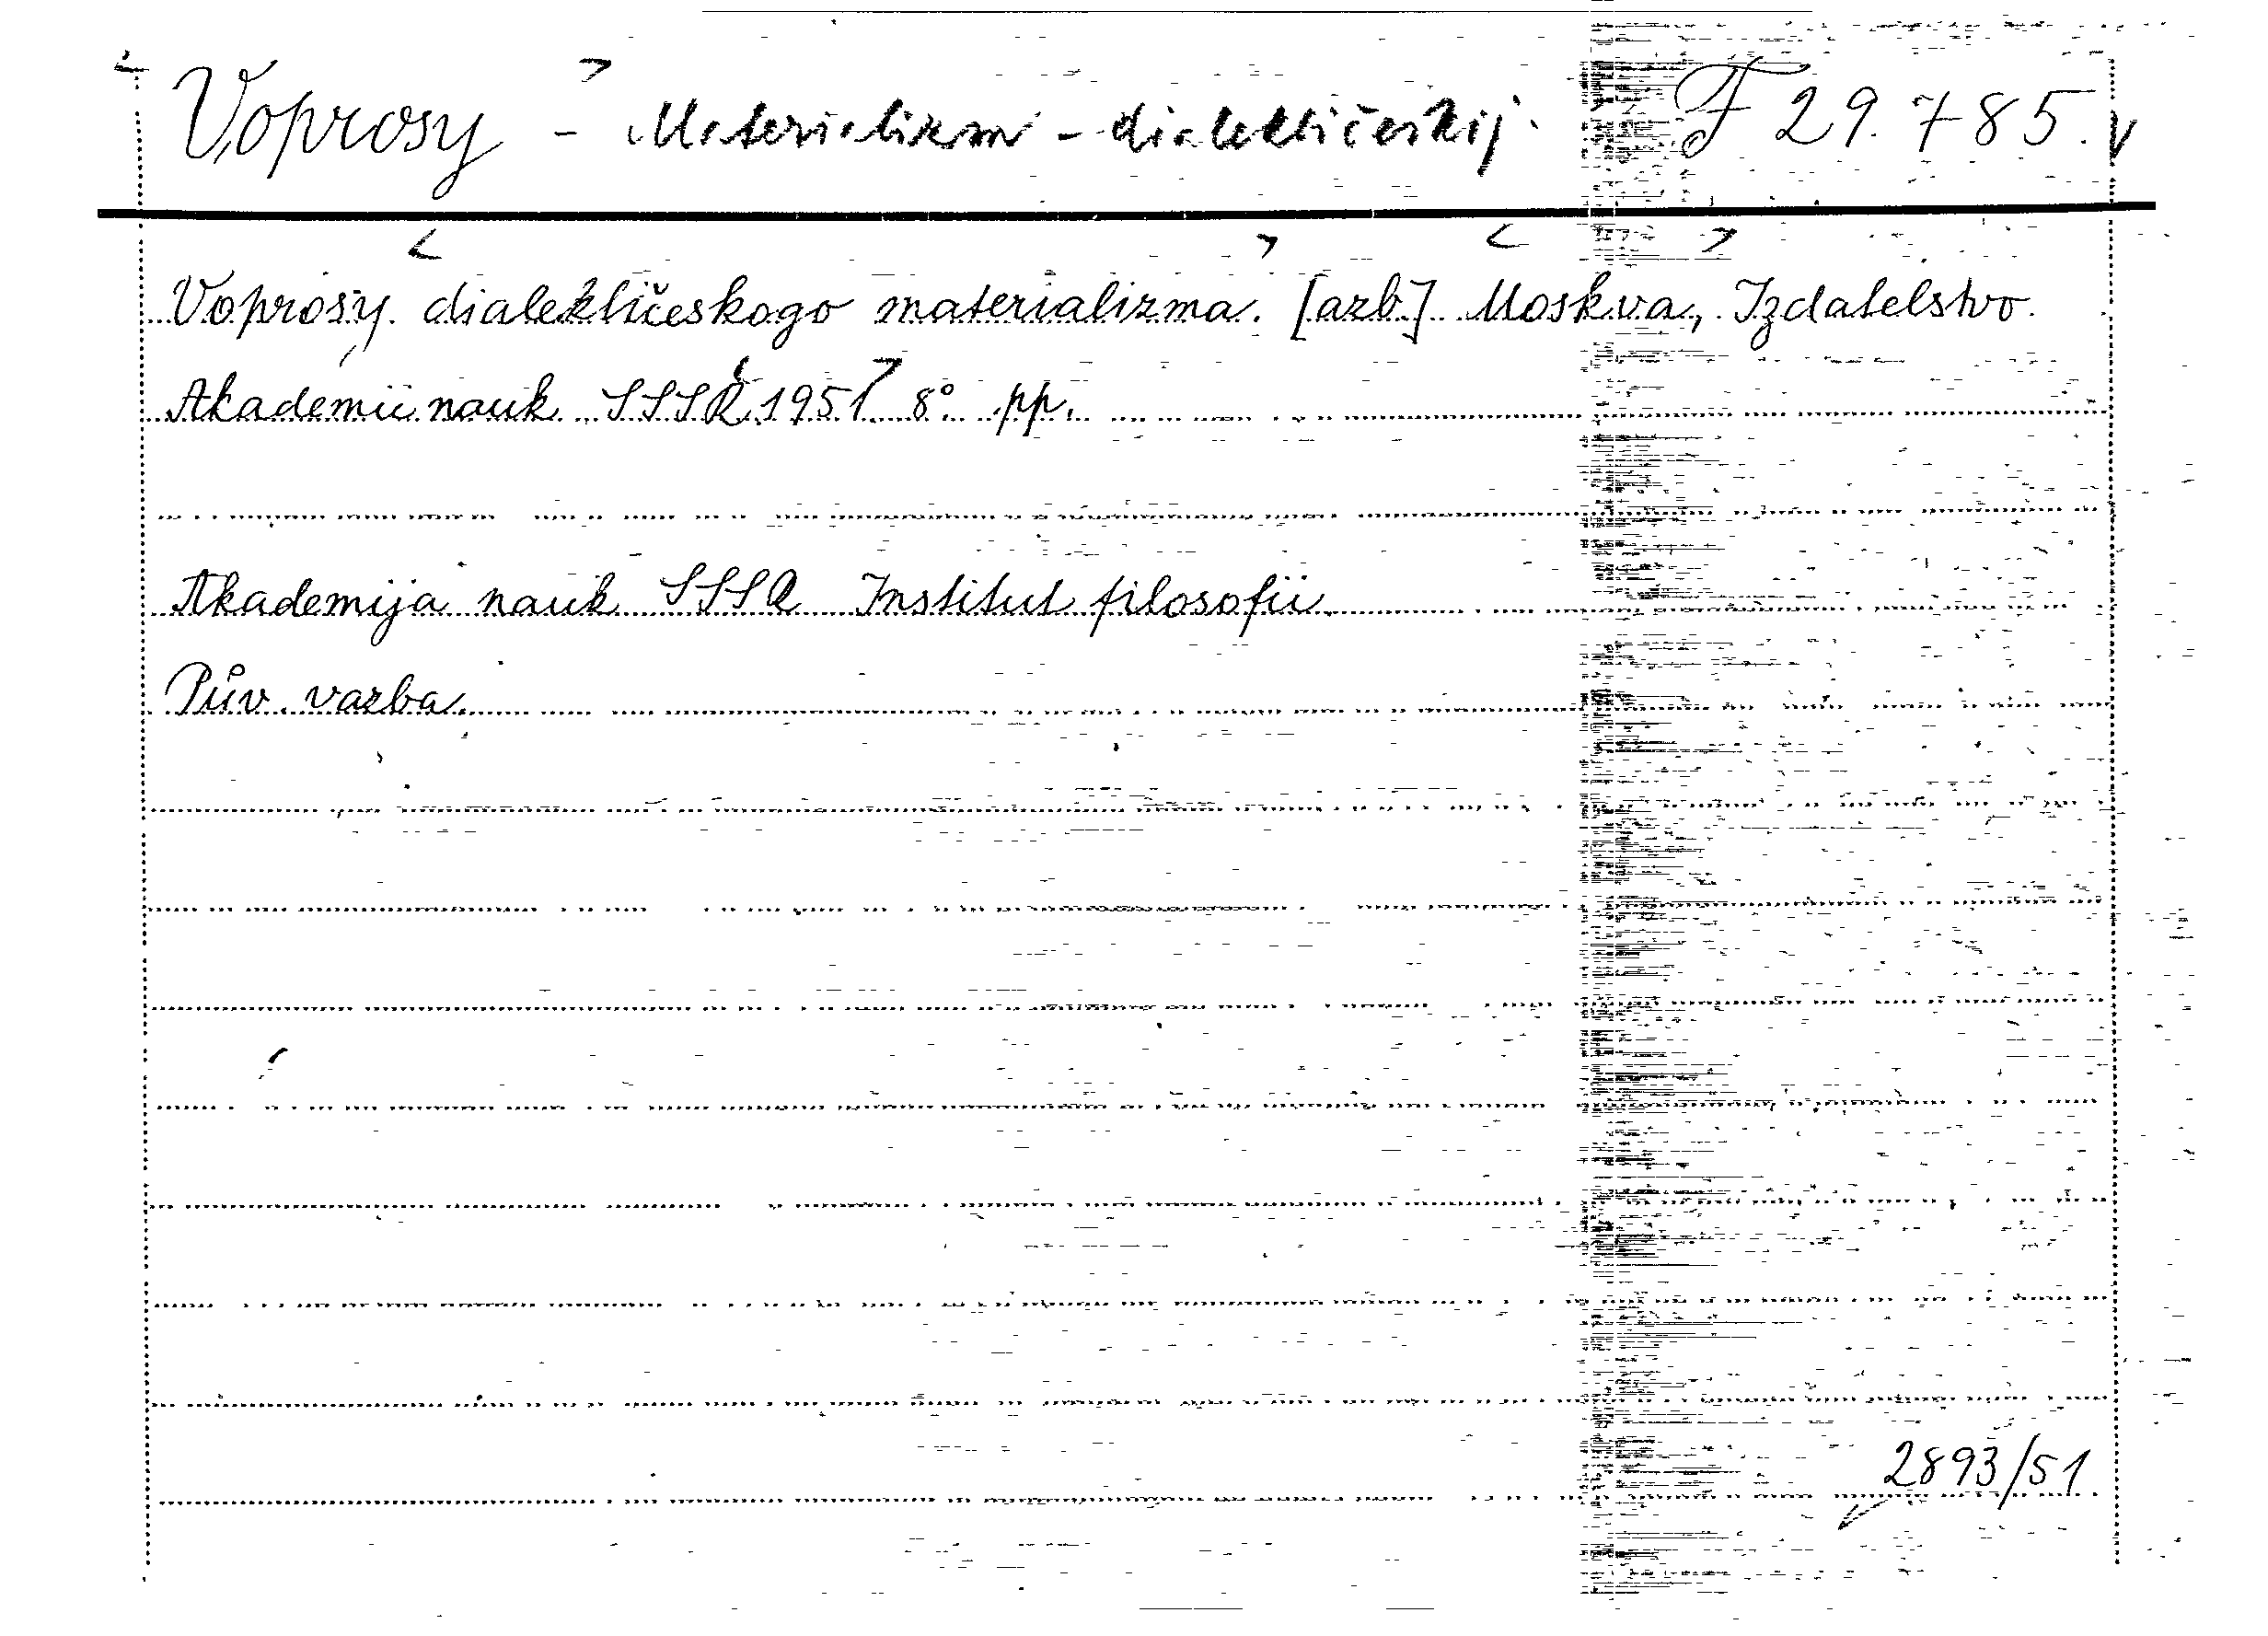 Voprosy - Materializm - dialektičeskij. F 29.785.
Voprosy dialektičeskogo materializma. [azb] Moskva, Izdatelstvo
Akademii nauk SSSR 1951 8° pp.
Akademija nauk SSSR Institut filosofii.
Pův. vazba.
2893/51